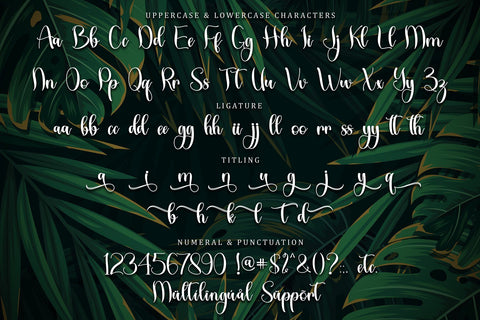 UPPERCASE & LOWERCASE CHARACTERS
Aa Bb Cc Dd Ee Ff Gg Hh Ii Jj Kk Ll Mm
Nn Oo Pp Qq Rr Ss Tt Uu Vv Ww Xx Yy Zz
LIGATURE
aa bb cc dd ee gg hh ii jj ll oo rr ss yy tt th
TITLING
a i m n u g j y
b h k l t d
NUMERAL & PUNCTUATION
1234567890 !@#$%^&()?:. etc.
Maltilinguál Sáppört